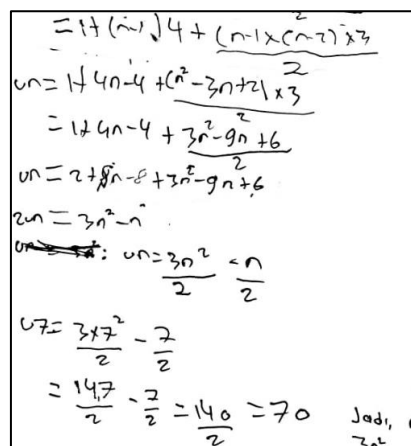 = 1+(n-1)4 + (n-1)x(n-2)x3 / 2
un = 1+4n-4+(n²-3n+2)x3 / 2
= 1+4n-4 + 3n²-9n+6 / 2
un = 2+8n-8+3n²-9n+6
2un = 3n²-n
: un = 3n²/2 - n/2
U7 = 3x7²/2 - 7/2
= 147/2 - 7/2 = 140/2 = 70
Jadi,
3n²